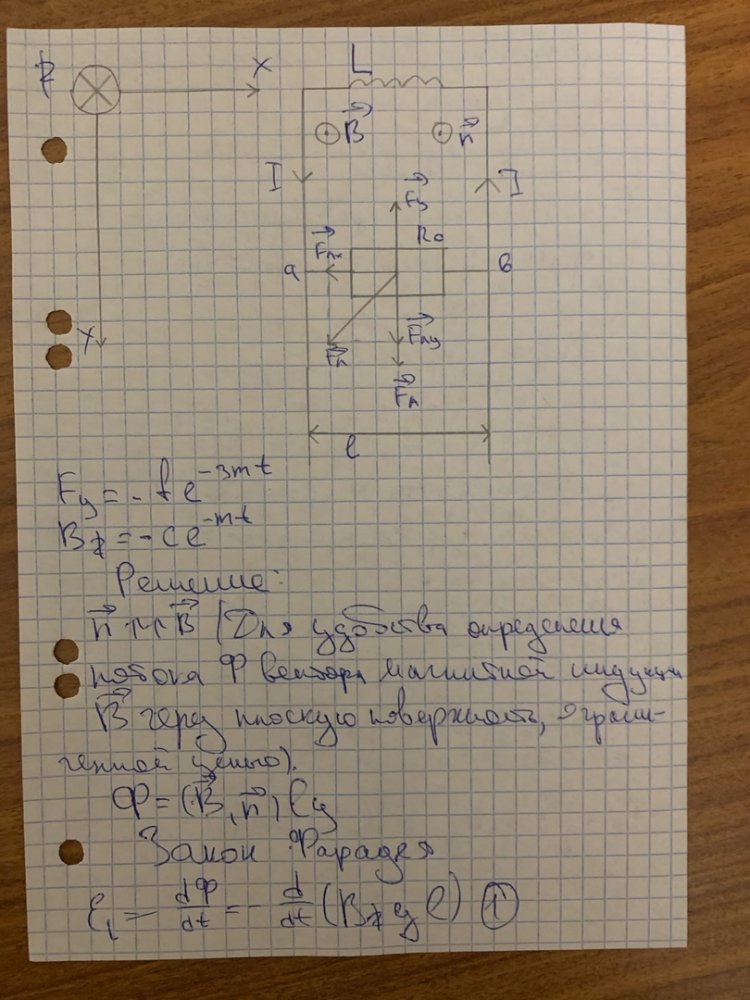 z X L
B⃗ n⃗
I I
F⃗y
R₀
a в
F⃗Ay
F⃗A
Y
l
Fy = - f e^{-3mt}
Bz = - c e^{-mt}
Решение:
n⃗ ↑↑ B⃗ (Для удобства определения
потока Ф вектора магнитной индукции
B⃗ через плоскую поверхность, ограни-
ченной цепью).
Ф = (B⃗, n⃗) l y
Закон Фарадея
ℰi = - dФ/dt = - d/dt (Bz y l) ①